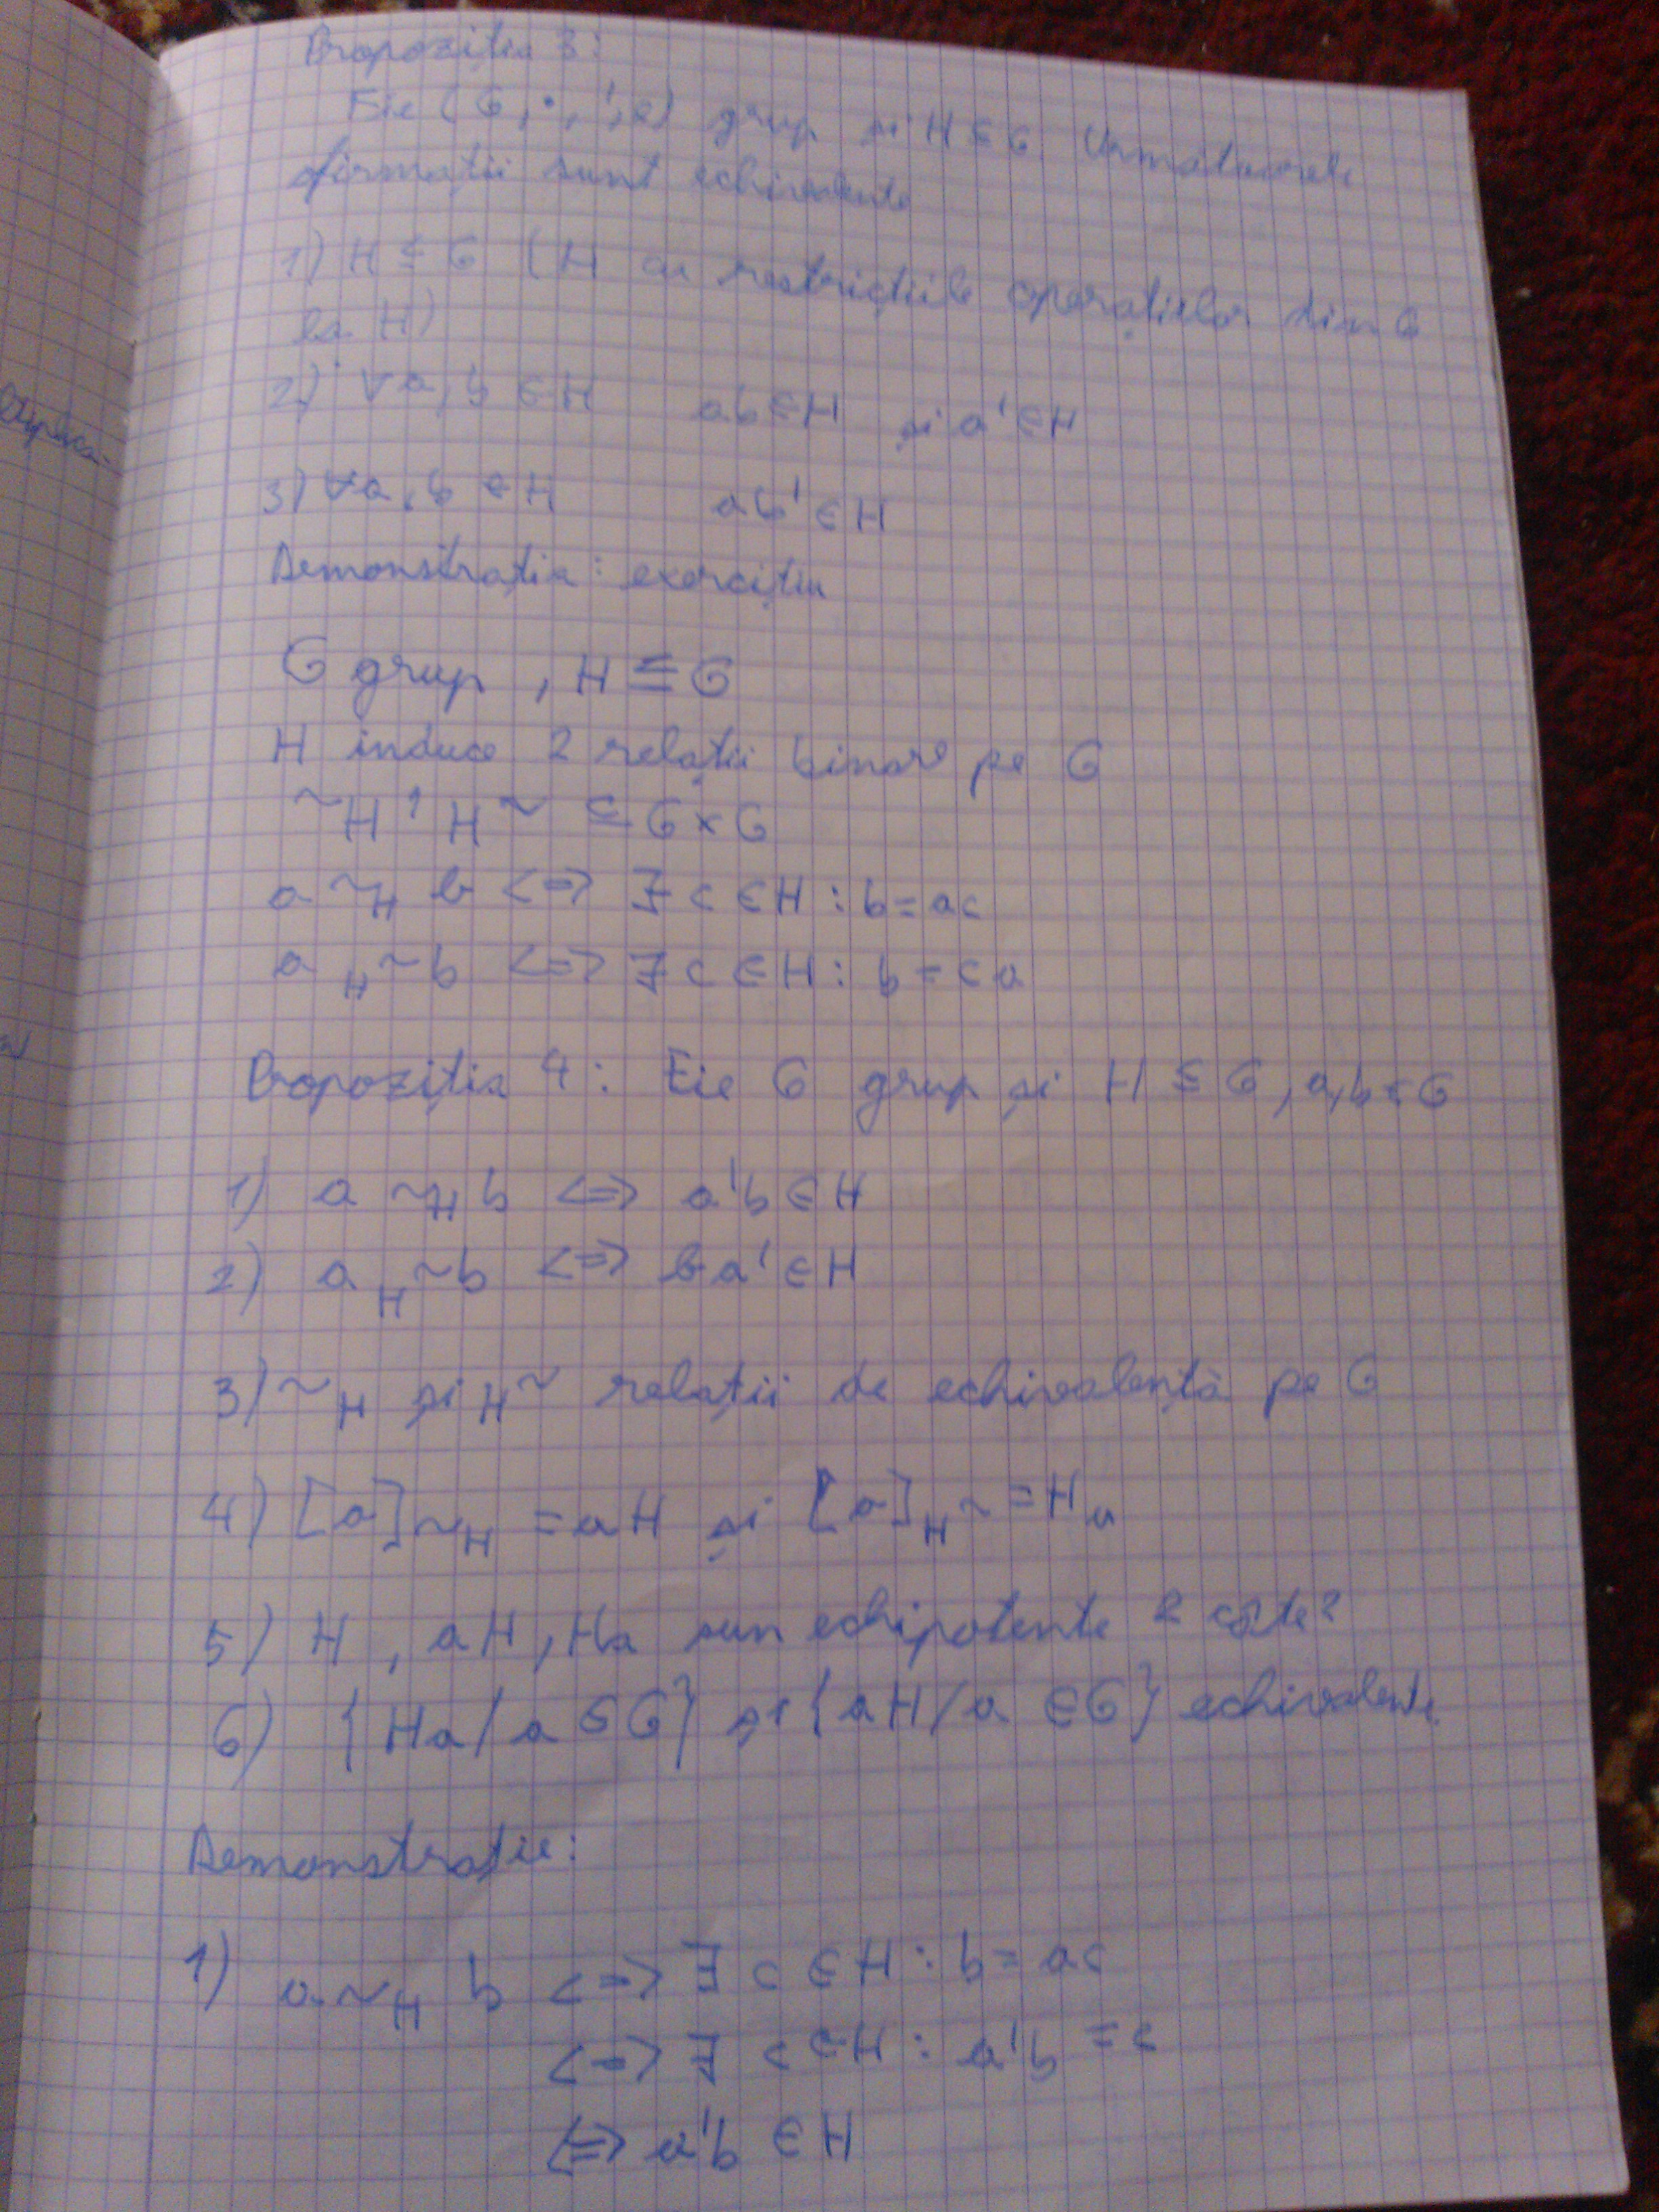 Propoziția 3:
Fie (G, ·, ', e) grup și H ⊆ G. Următoarele
afirmații sunt echivalente
1) H ≤ G (H cu restricțiile operațiilor din G
la H)
2) ∀ a, b ∈ H ab ∈ H și a' ∈ H
3) ∀ a, b ∈ H ab' ∈ H
Demonstrația: exercițiu
G grup, H ≤ G
H induce 2 relații binare pe G
~H , H~ ⊆ G×G
a ~H b <=> ∃ c ∈ H : b = ac
a H~ b <=> ∃ c ∈ H : b = ca
Propoziția 4: Fie G grup și H ≤ G, a,b ∈ G
1) a ~H b <=> a'b ∈ H
2) a H~ b <=> ba' ∈ H
3) ~H și H~ relații de echivalență pe G
4) [a]~H = aH și [a]H~ = Ha
5) H, aH, Ha sun echipotente 2 câte 2
6) {Ha/a ∈ G} și {aH/a ∈ G} echivalente
Demonstratie:
1) a ~H b <=> ∃ c ∈ H : b = ac
<=> ∃ c ∈ H : a'b = c
<=> a'b ∈ H